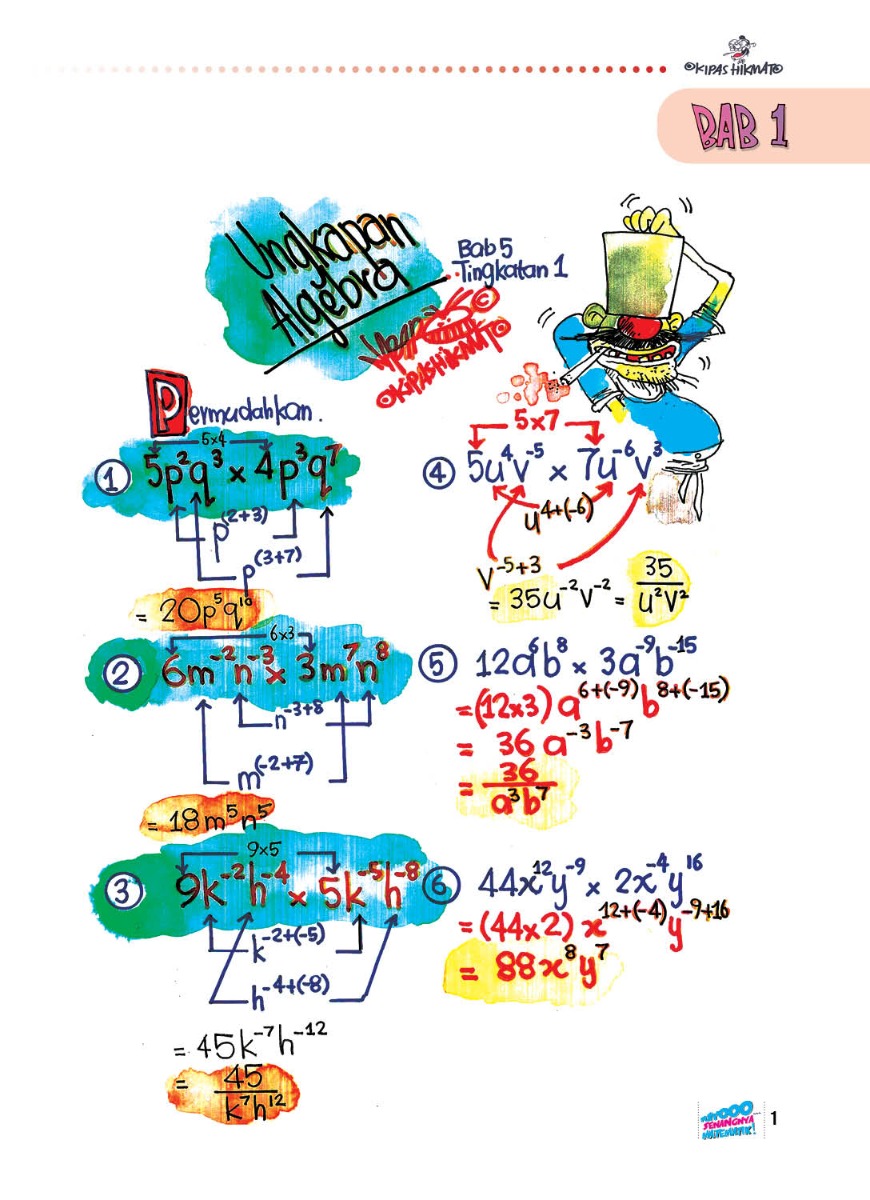 ©KIPAS HIKMAT©
BAB 1
Ungkapan
Algebra
Bab 5
Tingkatan 1
©KIPASHIKMAT©
Permudahkan.
5x4
① 5p²q³ × 4p³q⁷
p⁽²⁺³⁾
p⁽³⁺⁷⁾
= 20p⁵q¹⁰
6x3
② 6m⁻²n⁻³ × 3m⁷n⁸
n⁻³⁺⁸
m⁽⁻²⁺⁷⁾
= 18m⁵n⁵
9x5
③ 9k⁻²h⁻⁴ × 5k⁻⁵h⁻⁸
k⁻²⁺⁽⁻⁵⁾
h⁻⁴⁺⁽⁻⁸⁾
= 45k⁻⁷h⁻¹²
= 45/k⁷h¹²
5x7
④ 5u⁴v⁻⁵ × 7u⁻⁶v³
u⁴⁺⁽⁻⁶⁾
v⁻⁵⁺³
= 35u⁻²v⁻² = 35/u²v²
⑤ 12a⁶b⁸ × 3a⁻⁹b⁻¹⁵
= (12x3) a⁶⁺⁽⁻⁹⁾ b⁸⁺⁽⁻¹⁵⁾
= 36 a⁻³b⁻⁷
= 36/a³b⁷
⑥ 44x¹²y⁻⁹ × 2x⁻⁴y¹⁶
= (44x2) x¹²⁺⁽⁻⁴⁾ y⁻⁹⁺¹⁶
= 88x⁸y⁷
SENANGNYA
MATEMATIK!
1